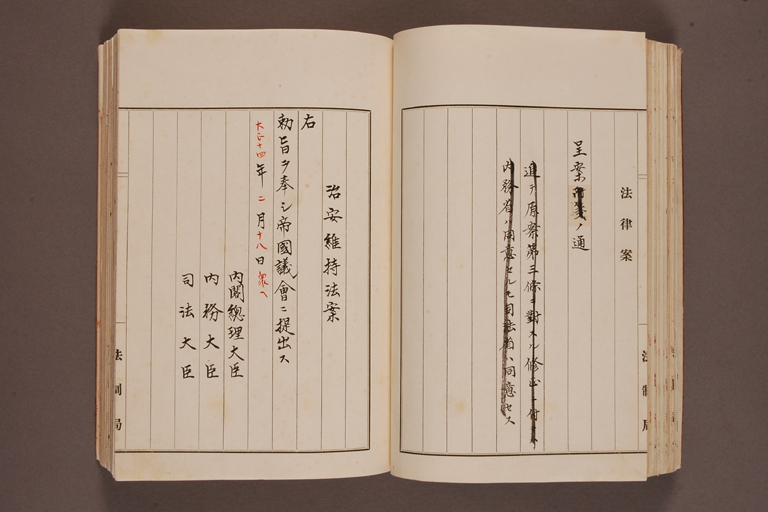 法律案
呈案ノ通
追テ原案第三條ニ對スル修正ニ付テハ
内務省ハ同意セルモ司法省ハ同意セス
法制局
治安維持法案
右
勅旨ヲ奉シ帝國議會ニ提出ス
大正十四年二月十八日衆へ
内閣總理大臣
内務大臣
司法大臣
法制局